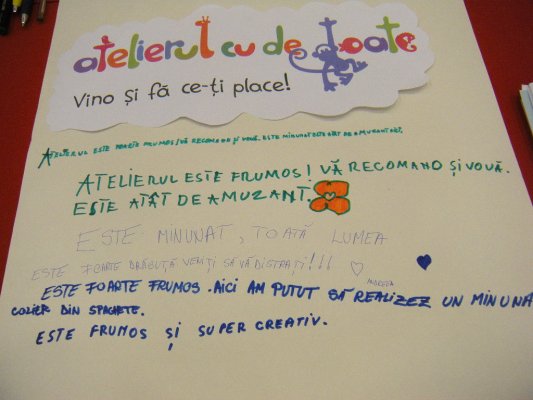 atelierul cu de toate
Vino și fă ce-ți place!
ATELIERUL ESTE FOARTE FRUMOS! VĂ RECOMAND ȘI VOUĂ. ESTE MINUNAT ESTE ATÂT DE AMUZANT.
ATELIERUL ESTE FRUMOS! VĂ RECOMAND ȘI VOUĂ.
ESTE ATÂT DE AMUZANT.
ESTE MINUNAT, TOATĂ LUMEA
ESTE FOARTE DRĂGUȚĂ VENIȚI SĂ VĂ DISTRAȚI!!!
ANDREEA
ESTE FOARTE FRUMOS. AICI AM PUTUT SĂ REALIZEZ UN MINUNA
COLIER DIN SPAGHETE.
ESTE FRUMOS ȘI SUPER CREATIV.